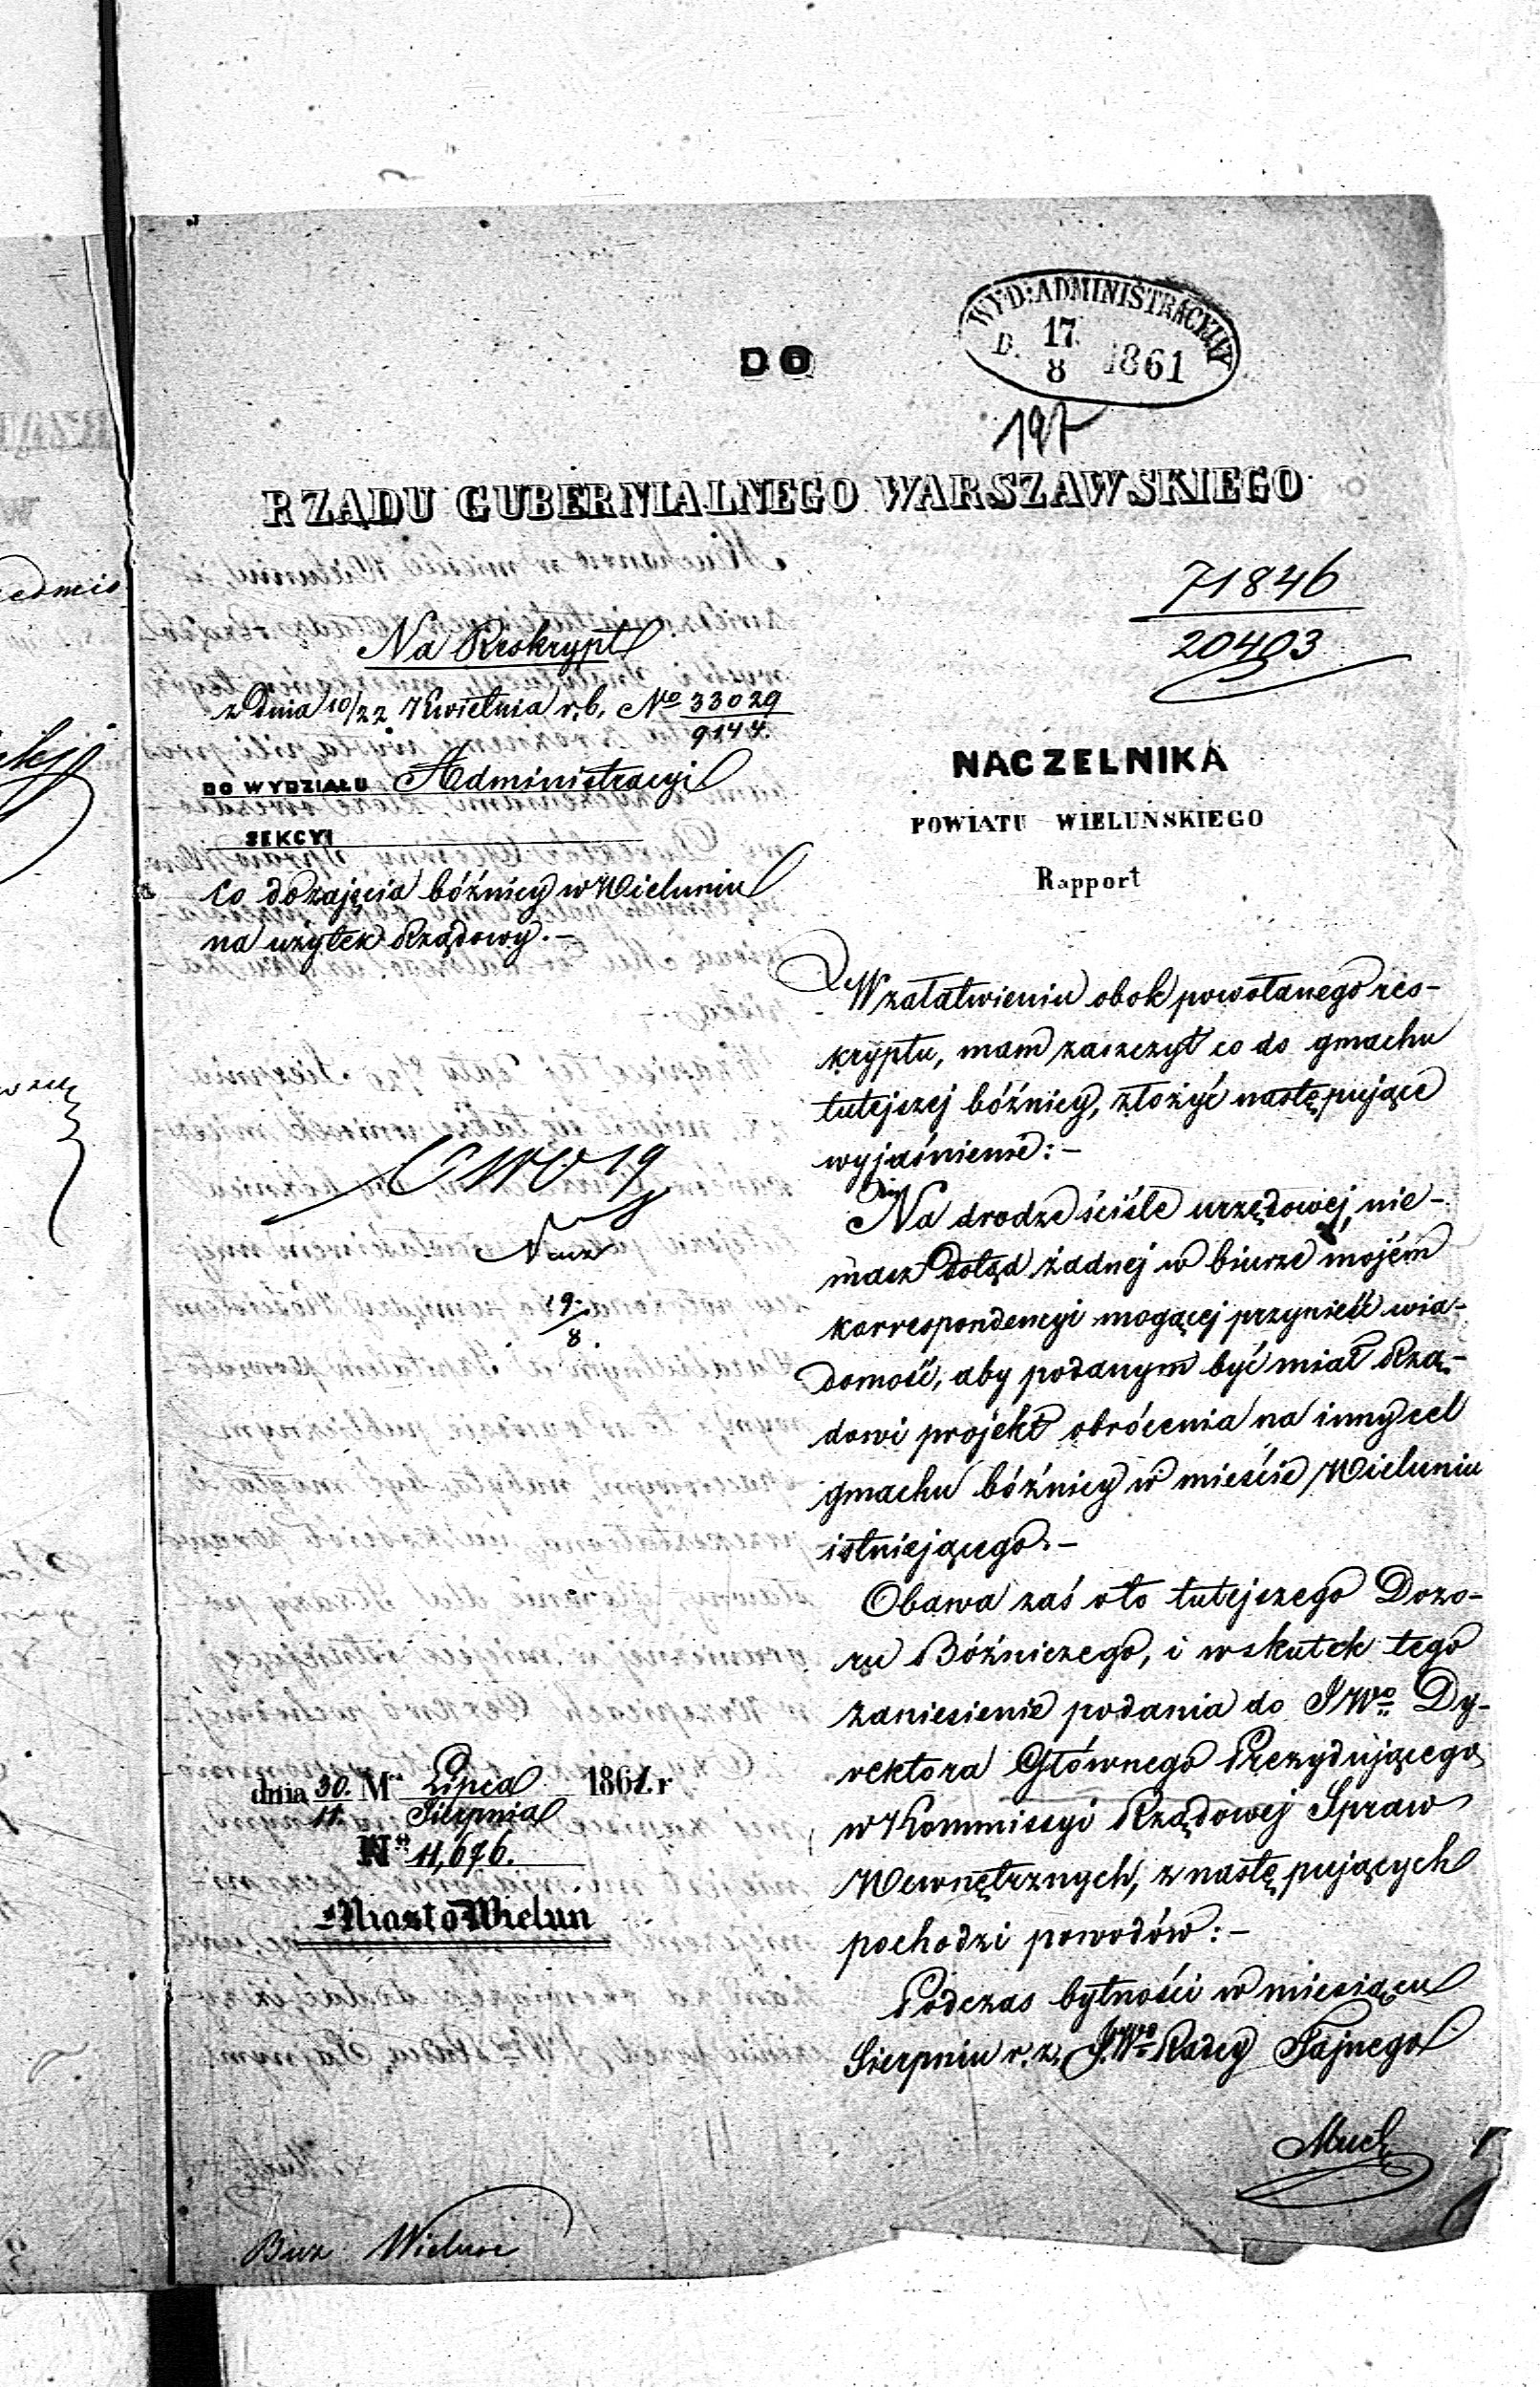 WYD: ADMINISTRACYJNY
D. 17/8 1861
197
DO
RZĄDU GUBERNIALNEGO WARSZAWSKIEGO
71846
20403
Na Reskrypt
z dnia 10/22 Kwietnia r. b. No 33029
9144.
DO WYDZIAŁU Administracyi
SEKCYI
co do zajęcia bóźnicy w Wieluniu
na użytek Rządowy. –
19
8.
dnia 30. Mca Lipca 1861 r
11. Sierpnia
No 11,676.
Miasto Wieluń
NACZELNIKA
POWIATU WIELUŃSKIEGO
Rapport
W załatwieniu obok powołanego res-
kryptu, mam zaszczyt co do gmachu
tutejszej bóźnicy, złożyć następujące
wyjaśnienie: –
Na drodze ściśle urzędowej, nie-
masz dotąd żadnej w biurze mojém
korrespondencyi mogącej przynieść wia-
domość, aby podanym być miał Rzą-
dowi projekt obrócenia na inny cel
gmachu bóźnicy w mieście Wieluniu
istniejącego. –
Obawa zaś o to tutejszego Dozo-
ru Bóźniczego, i wskutek tego
zaniesienie podania do JWo Dy-
rektora Głównego Prezydującego
w Kommissyi Rządowej Spraw
Wewnętrznych, z następujących
pochodzi powodów: –
Podczas bytności w miesiącu
Sierpniu r. z. JWo Radcy Tajnego
Much